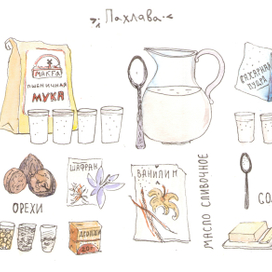 Пахлава
МАКFА
ПШЕНИЧНАЯ
МУКА
САХАРНАЯ
ПУДРА
ШАФРАН
ВАНИЛИН
ОРЕХИ
МАСЛО СЛИВОЧНОЕ
СО
ДРОЖЖИ